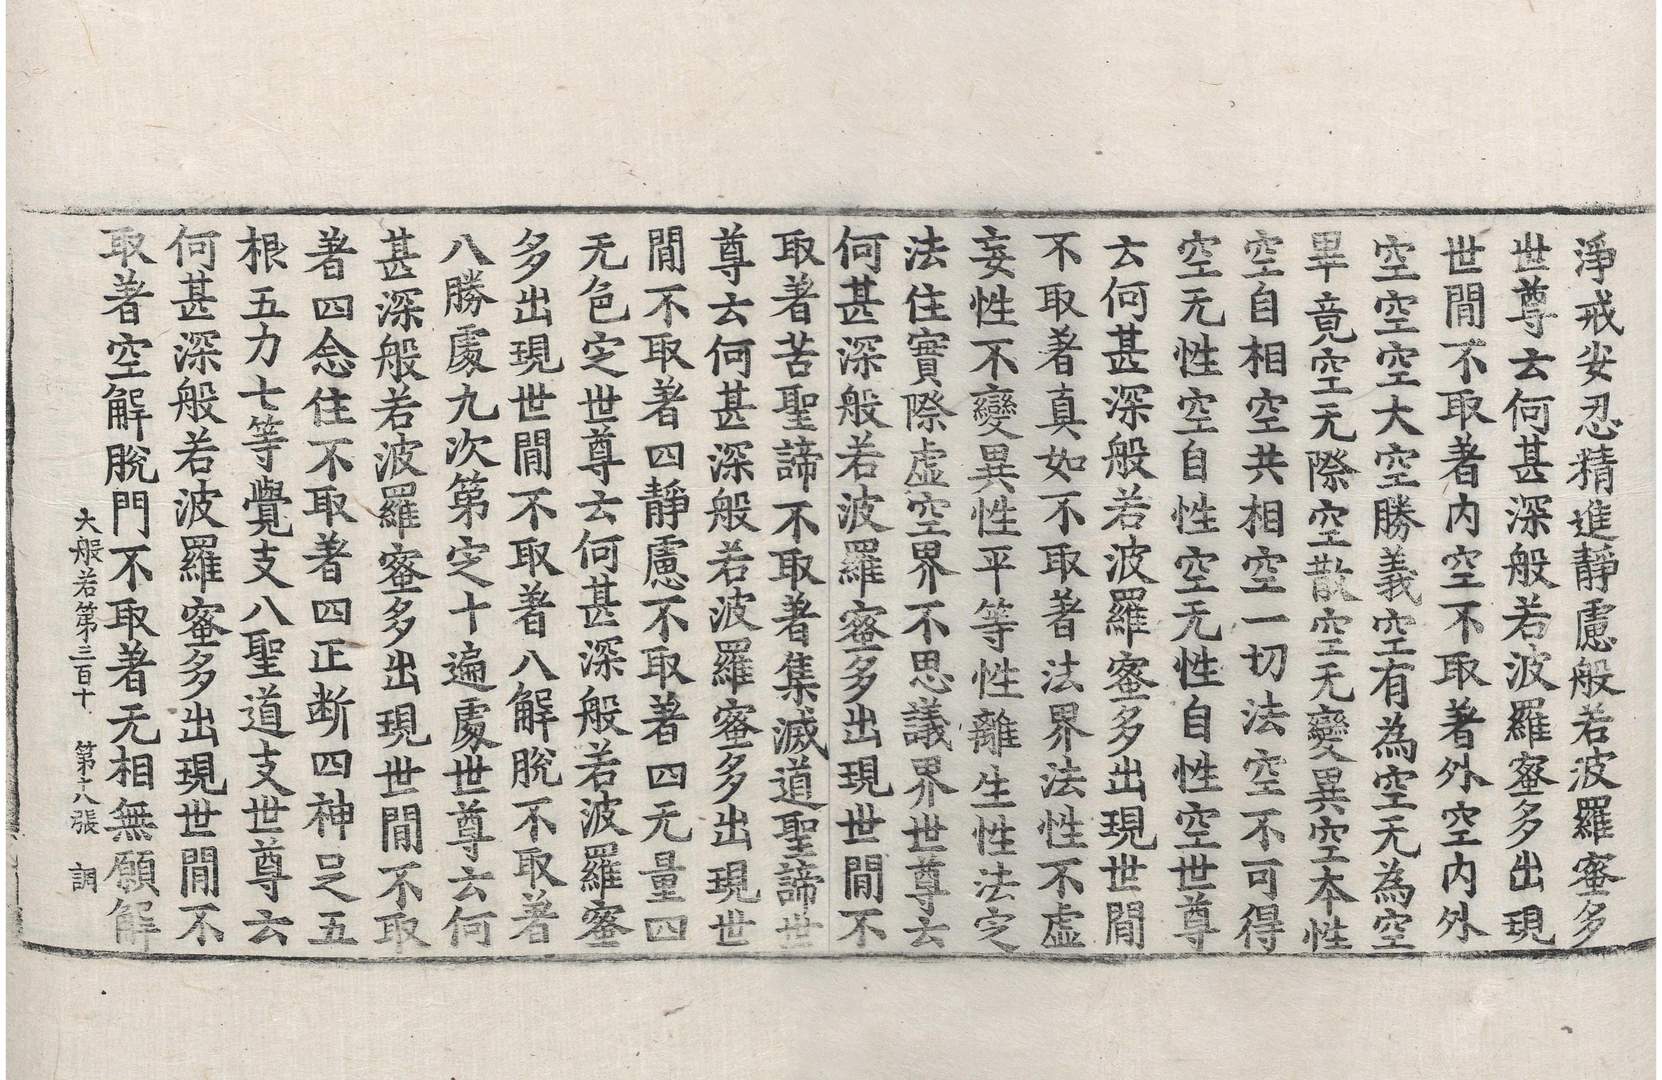 淨戒安忍精進靜慮般若波羅蜜多
世尊云何甚深般若波羅蜜多出現
世間不取著內空不取著外空內外
空空空大空勝義空有為空无為空
畢竟空无際空散空无變異空本性
空自相空共相空一切法空不可得
空无性空自性空无性自性空世尊
云何甚深般若波羅蜜多出現世間
不取著真如不取著法界法性不虛
妄性不變異性平等性離生性法定
法住實際虛空界不思議界世尊云
何甚深般若波羅蜜多出現世間不
取著苦聖諦不取著集滅道聖諦世
尊云何甚深般若波羅蜜多出現世
間不取著四靜慮不取著四无量四
无色定世尊云何甚深般若波羅蜜
多出現世間不取著八解脫不取著
八勝處九次第定十遍處世尊云何
甚深般若波羅蜜多出現世間不取
著四念住不取著四正断四神足五
根五力七等覺支八聖道支世尊云
何甚深般若波羅蜜多出現世間不
取著空解脫門不取著无相無願解
大般若第三百十 第十八張 調